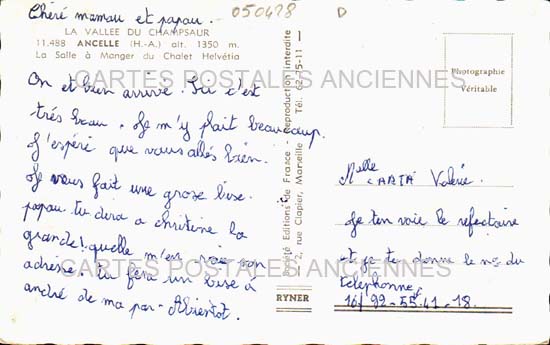 Chéré maman et papau.
050478
D
LA VALLÉE DU CHAMPSAUR
11.488 ANCELLE (H.-A.) alt. 1350 m.
La Salle à Manger du Chalet Helvétia
CARTES POSTALES ANCIENNES
On et bien arrivé. Ici c'est
trés beau. Je m'y plait beaucoup.
J'espéré que vous allés bien.
Je vous fait une grose bise.
papau tu dira a christine la
grande! quelle m'en voie son
adresse. tu fera un bise à
andré de ma par - Abientot.
Société Editions de France - Reproduction interdite
2, rue Clapier, Marseille - Tél. 62-15-11
RYNER
Photographie
Véritable
Melle
Valérie.
Je t'en voie le refectoire
et je te donne le no du
telephonne.
16/92-55-41-18.
CARTES POSTALES ANCIENNES